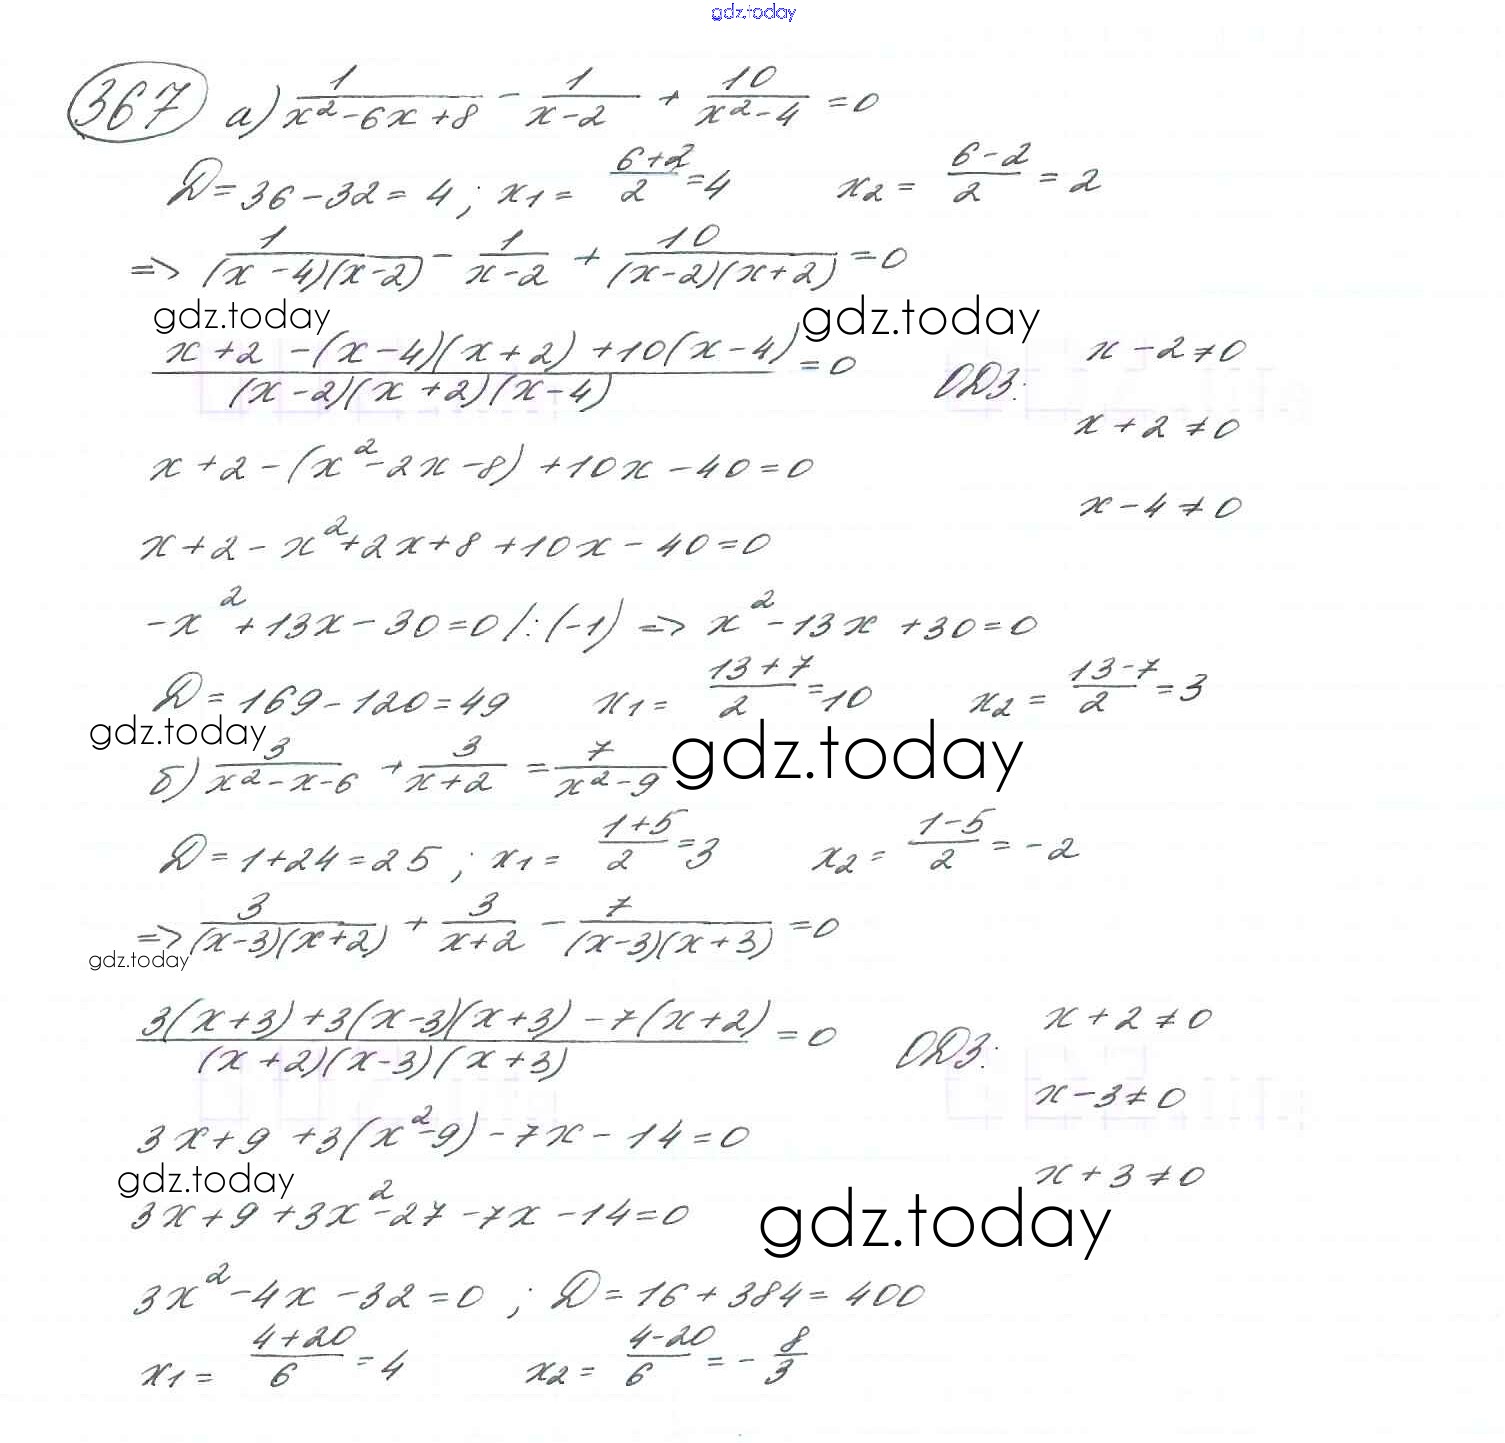 gdz.today
367 а) 1/(x²-6x+8) - 1/(x-2) + 10/(x²-4) =0
D=36-32=4; x1= (6+2)/2 =4 x2= (6-2)/2 =2
=> 1/((x-4)(x-2)) - 1/(x-2) + 10/((x-2)(x+2)) =0
gdz.today gdz.today
(x+2-(x-4)(x+2)+10(x-4))/((x-2)(x+2)(x-4)) =0 ОДЗ: x-2≠0
x+2≠0
x+2-(x²-2x-8)+10x-40=0
x-4≠0
x+2-x²+2x+8+10x-40=0
-x²+13x-30=0 /:(-1) => x²-13x+30=0
D=169-120=49 x1= (13+7)/2 =10 x2= (13-7)/2 =3
gdz.today gdz.today
б) 3/(x²-x-6) + 3/(x+2) = 7/(x²-9)
D=1+24=25; x1= (1+5)/2 =3 x2= (1-5)/2 =-2
=> 3/((x-3)(x+2)) + 3/(x+2) - 7/((x-3)(x+3)) =0
gdz.today
(3(x+3)+3(x-3)(x+3)-7(x+2))/((x+2)(x-3)(x+3)) =0 ОДЗ: x+2≠0
x-3≠0
3x+9+3(x²-9)-7x-14=0
x+3≠0
gdz.today gdz.today
3x+9+3x²-27-7x-14=0
3x²-4x-32=0; D=16+384=400
x1= (4+20)/6 =4 x2= (4-20)/6 =-8/3